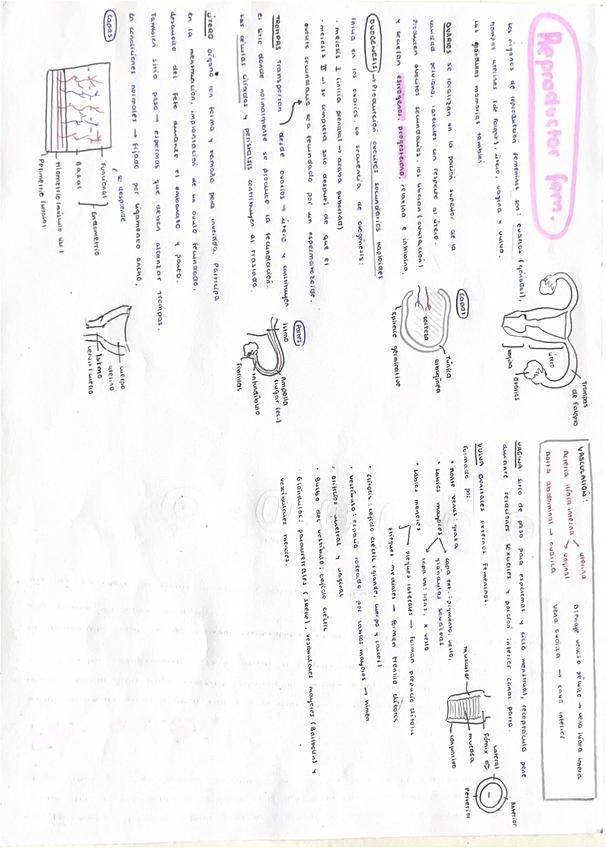 Reproductor fem.
Los órganos de reproducción femeninos son: ovarios (gónadas),
trompas uterinas (de falopio), útero, vagina y vulva.
Las glándulas mamarias también
Trompas
de falopio
útero
Ovarios
vagina
OVARIOS se localizan en la porción superior de la
cavidad pelviana, laterales con respecto al útero.
Producen ovocitos secundarios, los liberan (ovulación)
y secretan estrógenos, progesterona, relaxina e inhibina.
Capas
corteza
Túnica
albugínea
epitelio germinativo
OVOGENESIS → Producción ovocitos secundarios haploides
Inicia en los ovarios. La secuencia de ovogénesis:
• meiosis I (inicia prenatal → acaba pubertad)
• meiosis II → se completa solo después de que el
ovocito secundario sea fecundado por un espermatozoide.
TROMPAS transportan desde ovarios → útero y constituyen
el sitio donde normalmente se produce la fecundación.
Las células ciliadas y peristalsis contribuyen al traslado.
Partes
istmo
Ampolla
(lugar fec.)
infundíbulo
Fimbrias
ÚTERO órgano con forma y tamaño pera invertida. Participa
en la menstruación, implantación de un óvulo fecundado,
desarrollo del feto durante el embarazo y parto.
También sitio paso → espermas que deben alcanzar trompas.
En condiciones normales → fijado por ligamento ancho.
Capas
se desprende
funcional
Basal
Endometrio
Miometrio (músculo liso)
Perimetrio (serosa)
cuerpo
uterino
Istmo
cervix/cuello
VASCULACIÓN:
Arteria ilíaca interna
uterina
vaginal
aorta abdominal → ovárica
Drenaje venoso pélvico → vena ilíaca interna
vena ovárica → cava inferior
VAGINA sitio de paso para espermas y ciclo menstrual, receptáculo pene
durante relaciones sexuales y porción inferior canal parto.
lateral
anterior
Posterior
muscular
mucosa
conjuntivo
VULVA Genitales externos femeninos.
Formado por:
• monte venus: grasa
• Labios mayores
capa ext: pigmento, vello,
glándulas sebáceas
capa int: lisas, x vello
• Labios menores
pliegues laterales → forman prepucio clítoris
pliegues mediales → forman frenillo clítoris
• clítoris: tejido eréctil (glande, cuerpo y raíces)
• vestíbulo: espacio rodeado por labios mayores → himen
• orificios uretral y vaginal
• Bulbo del vestíbulo: tejido eréctil
Glándulas: parauretrales (skene), vestibulares mayores (Bartolin) y
vestibulares menores.